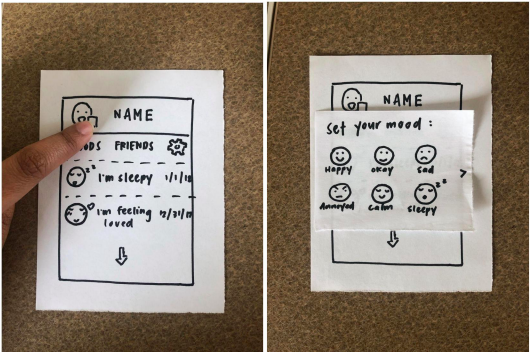 NAME
ODS FRIENDS
I'm sleepy 1/1/18
I'm feeling 12/31/17
loved
NAME
Set your mood :
Happy okay sad
Annoyed calm sleepy